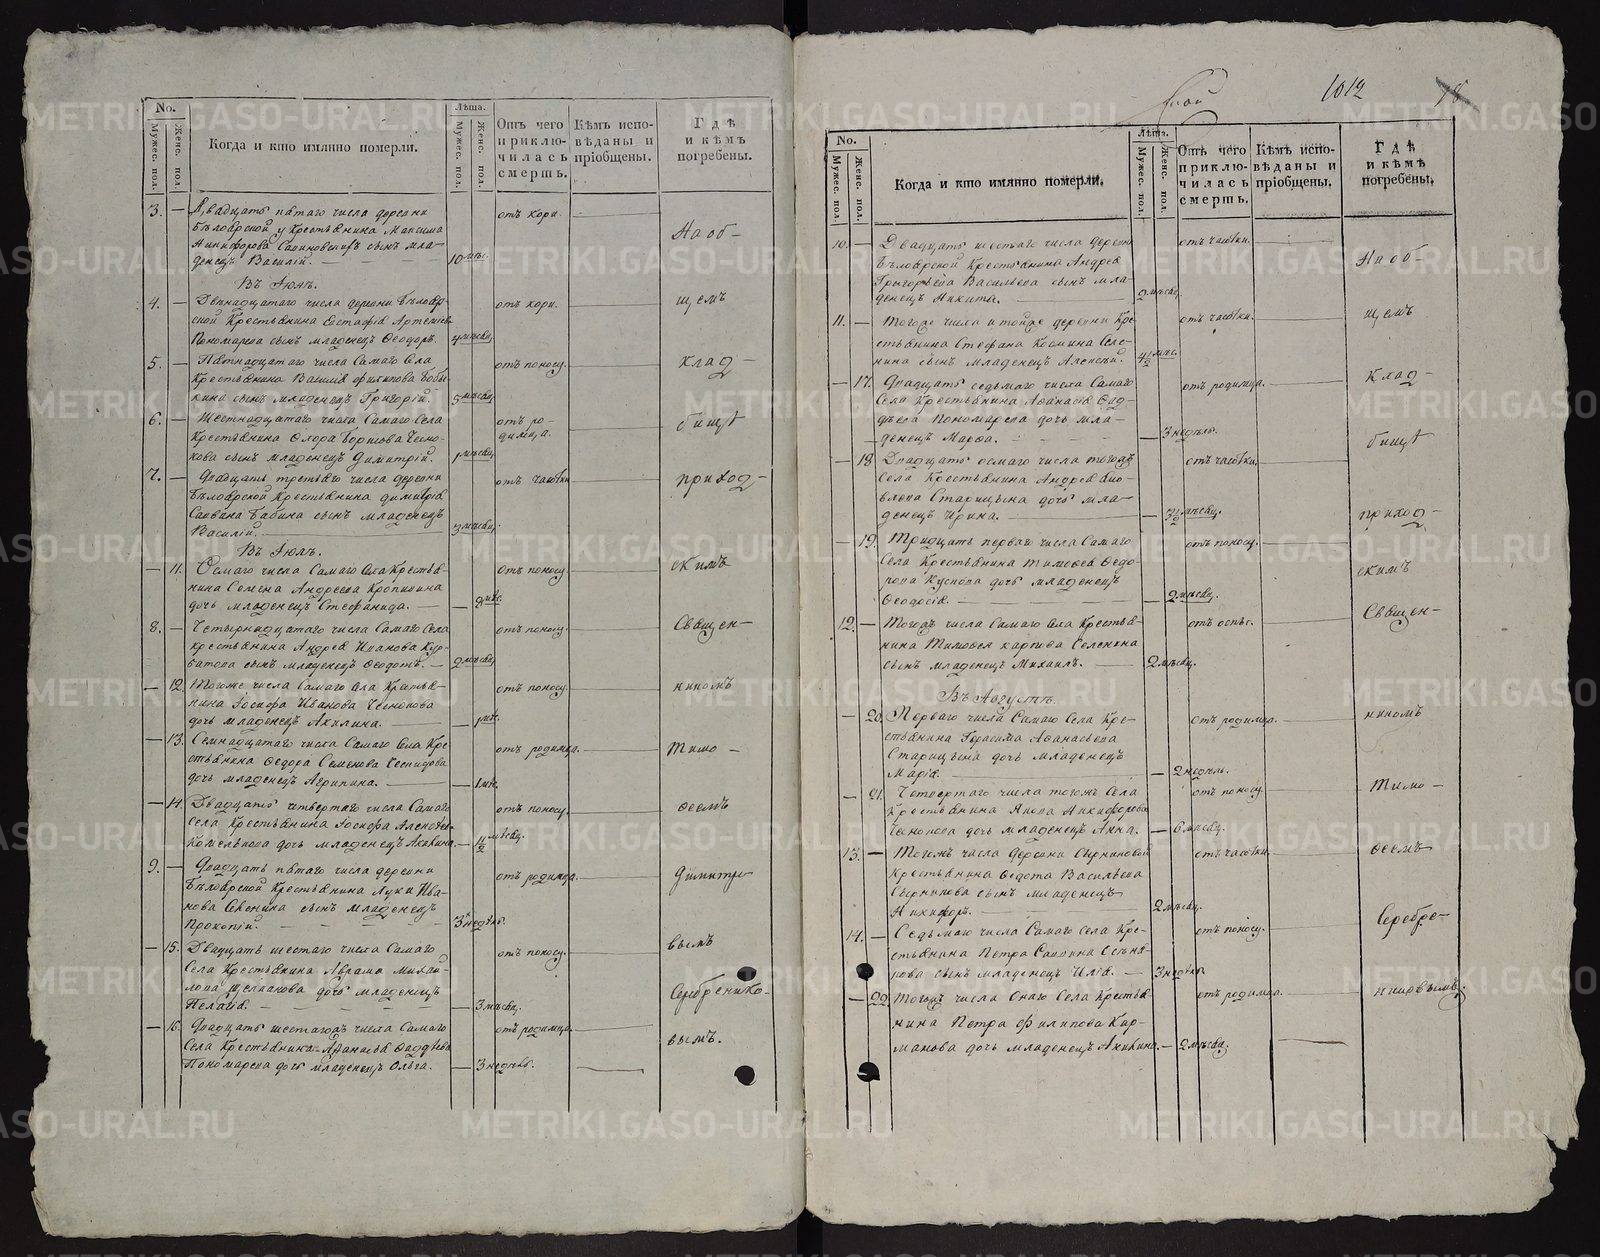 No.
Мужес. пол.
Женс. пол.
Когда и кто имянно померли.
Лѣта.
Мужес. пол.
Женс. пол.
Отъ чего
приклю-
чилась
смерть.
Кѣмъ испо-
вѣданы и
пріобщены.
Гдѣ
и кѣмъ
погребены.
3. — Двадцать пятаго числа деревни
Бѣлоярской у крестьянина Максима
Никифорова сынъ мла-
денецъ Василій. 10 мѣс. отъ кори.
Въ Іюлѣ.
4. — Двенадцатаго числа деревни Бѣлояр-
ской Крестьянина Евстафія Артеміева
Пономарева сынъ младенецъ Ѳеодоръ. 4 мѣсяц. отъ кори.
5. — Пятнадцатаго числа Самаго Села
Крестьянина Василія Филипова Бобы-
кина сынъ младенецъ Григорій. 5 мѣсяц. отъ поносу.
6. — Шестнадцатаго числа Самаго Села
Крестьянина Флора Борисова Чесно-
кова сынъ младенецъ Димитрій. 1 мѣсяц. отъ ро-
димца.
7. — Двадцать третьяго числа деревни
Бѣлоярской Крестьянина Димитрія
Бабина сынъ младенецъ
Василій. 3 мѣсяц. отъ чахотки
Въ Іюлѣ.
— 11. Осмаго числа Самаго Села Крестья-
нина Семена Андреева Кропинина
дочь младенецъ Стефанида. — 9 мѣс. отъ поносу
8. — Четырнадцатаго числа Самаго Села
крестьянина Андрея Иванова Кур-
батова сынъ младенецъ Ѳеодотъ. 2 мѣсяц. отъ поносу.
— 12. Тогоже числа Самаго Села Крестья-
нина Іосифа Иванова Чеснокова
дочь младенецъ Акилина. — 1 мѣс. отъ поносу.
— 13. Семнадцатаго числа Самаго Села Кре-
стьянина Ѳедора Семенова
дочь младенецъ Агрипина. — 1 мѣс. отъ родимца.
— 14. Двадцать четвертаго числа Самаго
Села Крестьянина Іосифа Алексѣева
дочь младенецъ Акилина. — 1½ мѣсяц. отъ поносу.
9. — Двадцать пятаго числа деревни
Бѣлоярской Крестьянина Луки Ива-
нова сынъ младенецъ
Прокопій. 3 недѣль. отъ родимца.
— 15. Двадцать шестаго числа Самаго
Села Крестьянина Аврама Михай-
лова дочь младенецъ
Пелагія. — 3 мѣсяц. отъ поносу.
— 16. Двадцать шестагожъ числа Самаго
Села Крестьянина Афанасія Ѳаддѣева
Пономарева дочь младенецъ Ольга. — 3 недѣль. отъ родимца.
На об-
щемъ
клад-
бищѣ
приход-
скимъ
Священ-
никомъ
Тимо-
ѳеемъ
Димитрі-
вымъ
Серебренико-
вымъ.
1012
18
No.
Мужес. пол.
Женс. пол.
Когда и кто имянно померли.
Лѣта.
Мужес. пол.
Женс. пол.
Отъ чего
приклю-
чилась
смерть.
Кѣмъ испо-
вѣданы и
пріобщены.
Гдѣ
и кѣмъ
погребены.
10. — Двадцать шестаго числа деревни
Бѣлоярской Крестьянина Андрея
Григорьева Васильева сынъ мла-
денецъ Никита. 2 мѣсяц. отъ чахотки.
11. — Тогоже числа и тойже деревни Кре-
стьянина Стефана Козмина Селе-
нина сынъ младенецъ Алексѣй. 4½ мѣс. отъ чахотки.
— 17. Двадцать седьмаго числа Самаго
Села Крестьянина Афанасія Ѳад-
дѣева Пономарева дочь мла-
денецъ Марѳа. — 3 недѣль. отъ родимца.
— 18. Двадцать осмаго числа тогожъ
Села Крестьянина Андрея
Старицына дочь мла-
денецъ Ирина. — 3½ мѣсяц. отъ чахотки.
— 19. Тридцать перваго числа Самаго
Села Крестьянина Тимоѳея Ѳедо-
рова Кускова дочь младенецъ
Ѳеодосія. — 2 мѣсяц. отъ поносу.
12. — Тогожъ числа Самаго Села Крестья-
нина Тимоѳея Карпова Селенина
сынъ младенецъ Михаилъ. 2 мѣсяц. отъ оспы.
Въ Августѣ.
— 20. Перваго числа Самаго Села Кре-
стьянина Герасима Афанасьева
Старицына дочь младенецъ
Марія. — 2 недѣль. отъ родимца.
— 21. Четвертаго числа тогожъ Села
Крестьянина Якова Никифорова
Чеснокова дочь младенецъ Анна. — 6 мѣсяц. отъ поносу.
13. — Тогожъ числа деревни Сырниковой
Крестьянина Ѳедота Васильева
Сырникова сынъ младенецъ
Никифоръ. 2 мѣсяц. отъ чахотки.
14. — Седьмаго числа Самаго Села Кре-
стьянина Петра
сынъ младенецъ Илія. — 3 недѣль. отъ поносу.
— 22. Тогожъ числа Онаго Села Крестья-
нина Петра Филипова Кар-
макова дочь младенецъ Акилина. — 2 мѣсяц. отъ родимца.
На об-
щемъ
клад-
бищѣ
приход-
скимъ
Священ-
никомъ
Тимо-
ѳеемъ
Серебре-
никовымъ.
METRIKI.GASO-URAL.RU